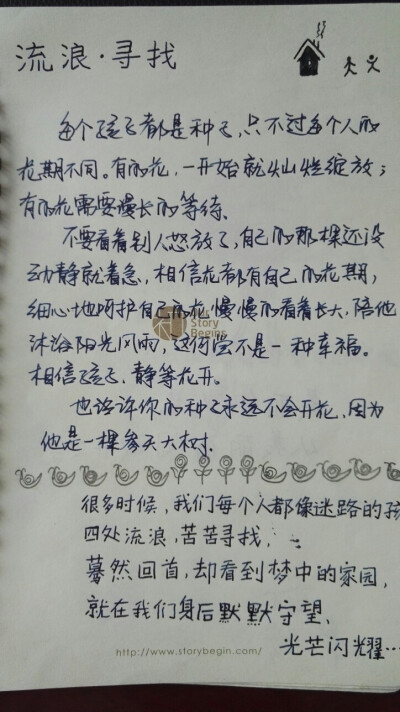 流浪·寻找
每个孩子都是种子,只不过每个人的
花期不同。有的花,一开始就灿烂绽放;
有的花需要漫长的等待、
不要看着别人怒放了,自己的那棵还没
动静就着急,相信花都有自己的花期,
细心地呵护自己的花慢慢的看着长大,陪他
沐浴阳光风雨,这何尝不是一种幸福。
相信孩子、静等花开。
也许许你的种子永远不会开花,因为
他是一棵参天大树.
Story
Begins
很多时候,我们每个人都像迷路的孩
四处流浪,苦苦寻找,
蓦然回首,却看到梦中的家园,
就在我们身后默默守望、
光芒闪耀…
http://www.storybegin.com/